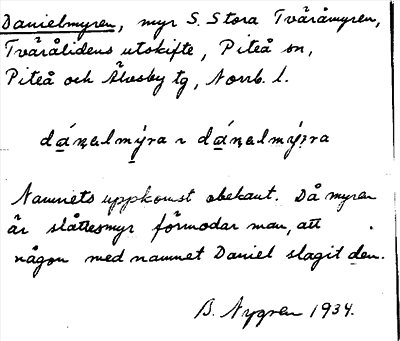 Danielmyren, myr S. Stora Tväråmyren,
Tvärålidens utskifte, Piteå sn,
Piteå och Älvsby tg, Norrb. l.
dánɐlmýra ~ dánɐlmýrra
Namnets uppkomst obekant. Då myren
är slåttesmyr förmodar man, att
någon med namnet Daniel slagit den.
B. Nygren 1934.